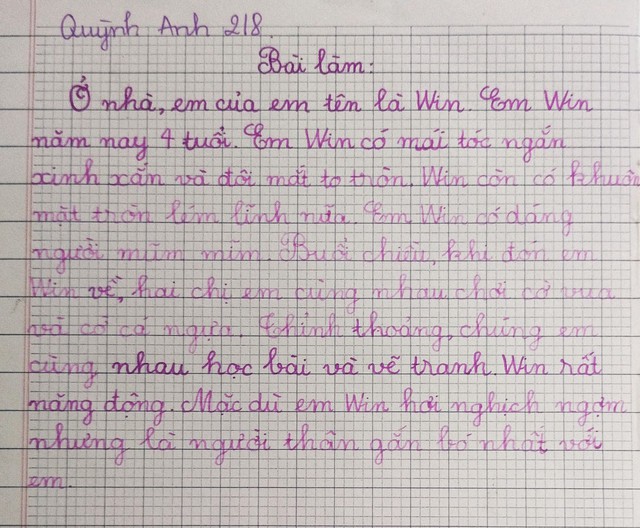 Quỳnh Anh 2/8
Bài làm:
Ở nhà, em của em tên là Win. Em Win
năm nay 4 tuổi. Em Win có mái tóc ngắn
xinh xắn và đôi mắt to tròn. Win còn có khuôn
mặt tròn lém lĩnh nữa. Em Win có dáng
người mũm mĩm. Buổi chiều, khi đón em
Win về, hai chị em cùng nhau chơi cờ vua
và cờ cá ngựa. Thỉnh thoảng, chúng em
cùng nhau học bài và vẽ tranh. Win rất
năng động. Mặc dù em Win hơi nghịch ngợm
nhưng là người thân gắn bó nhất với
em.